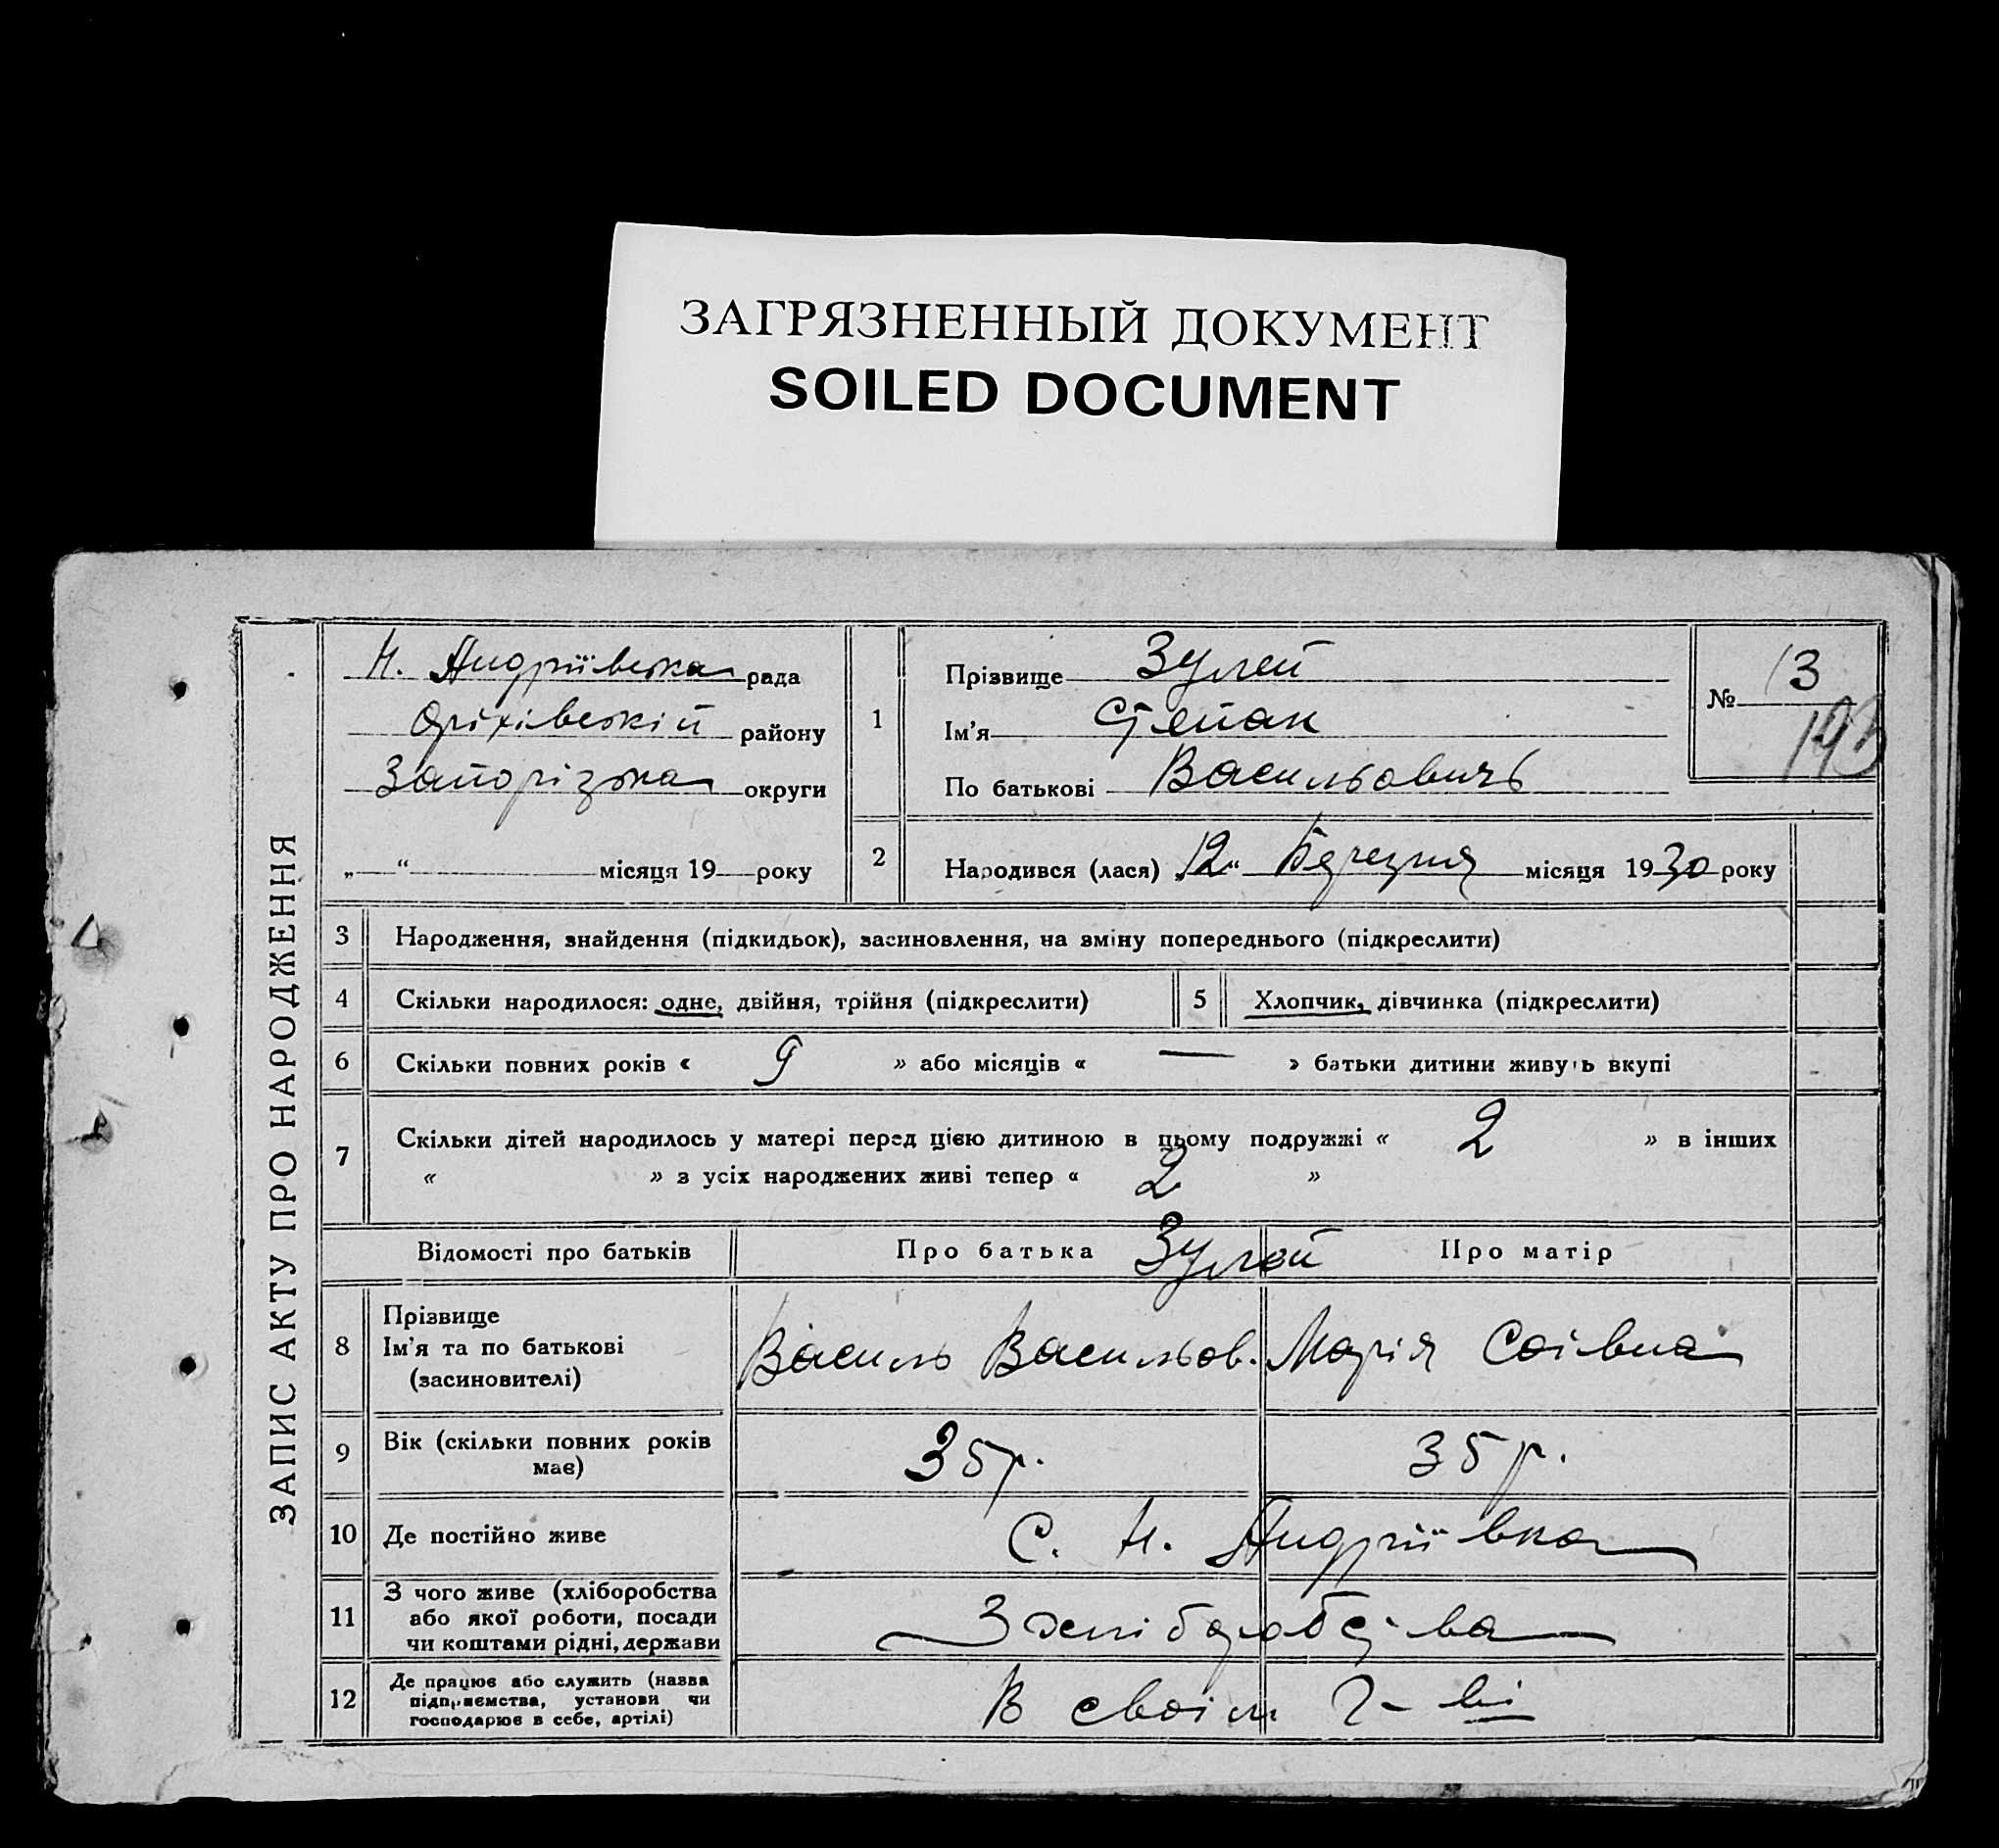 ЗАГРЯЗНЕННЫЙ ДОКУМЕНТ
SOILED DOCUMENT
ЗАПИС АКТУ ПРО НАРОДЖЕННЯ
Н. Андріївська рада
Оріхівський району
Запорізька округи
„ “ місяця 19 року
1
Прізвище Зулей
Ім'я Степан
По батькові Васильовичь
№ 13
2
Народився (лася) „12“ Березня місяця 1930 року
3 Народження, знайдення (підкидьок), засиновлення, на зміну попереднього (підкреслити)
4 Скільки народилося: одне, двійня, трійня (підкреслити) 5 Хлопчик, дівчинка (підкреслити)
6 Скільки повних років « 9 » або місяців « — » батьки дитини живуть вкупі
7 Скільки дітей народилось у матері перед цією дитиною в цьому подружжі « 2 » в інших
« » з усіх народжених живі тепер « 2 »
Відомості про батьків Про батька Зулей Про матір
8 Прізвище
Ім'я та по батькові
(засиновителі)
Василь Васильов. Марія
9 Вік (скільки повних років
має)
35 р. 35 р.
10 Де постійно живе С. Н. Андріївка
11 З чого живе (хліборобства
або якої роботи, посади
чи коштами рідні, держави
З хліборобства
12 Де працює або служить (назва
підприємства, установи чи
господарює в себе, артілі)
В своім г-ві